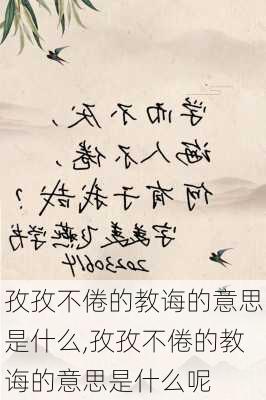 学而不厌、
诲人不倦、
何有于我哉？
飞燕学书
20230614
孜孜不倦的教诲的意思
是什么,孜孜不倦的教
诲的意思是什么呢